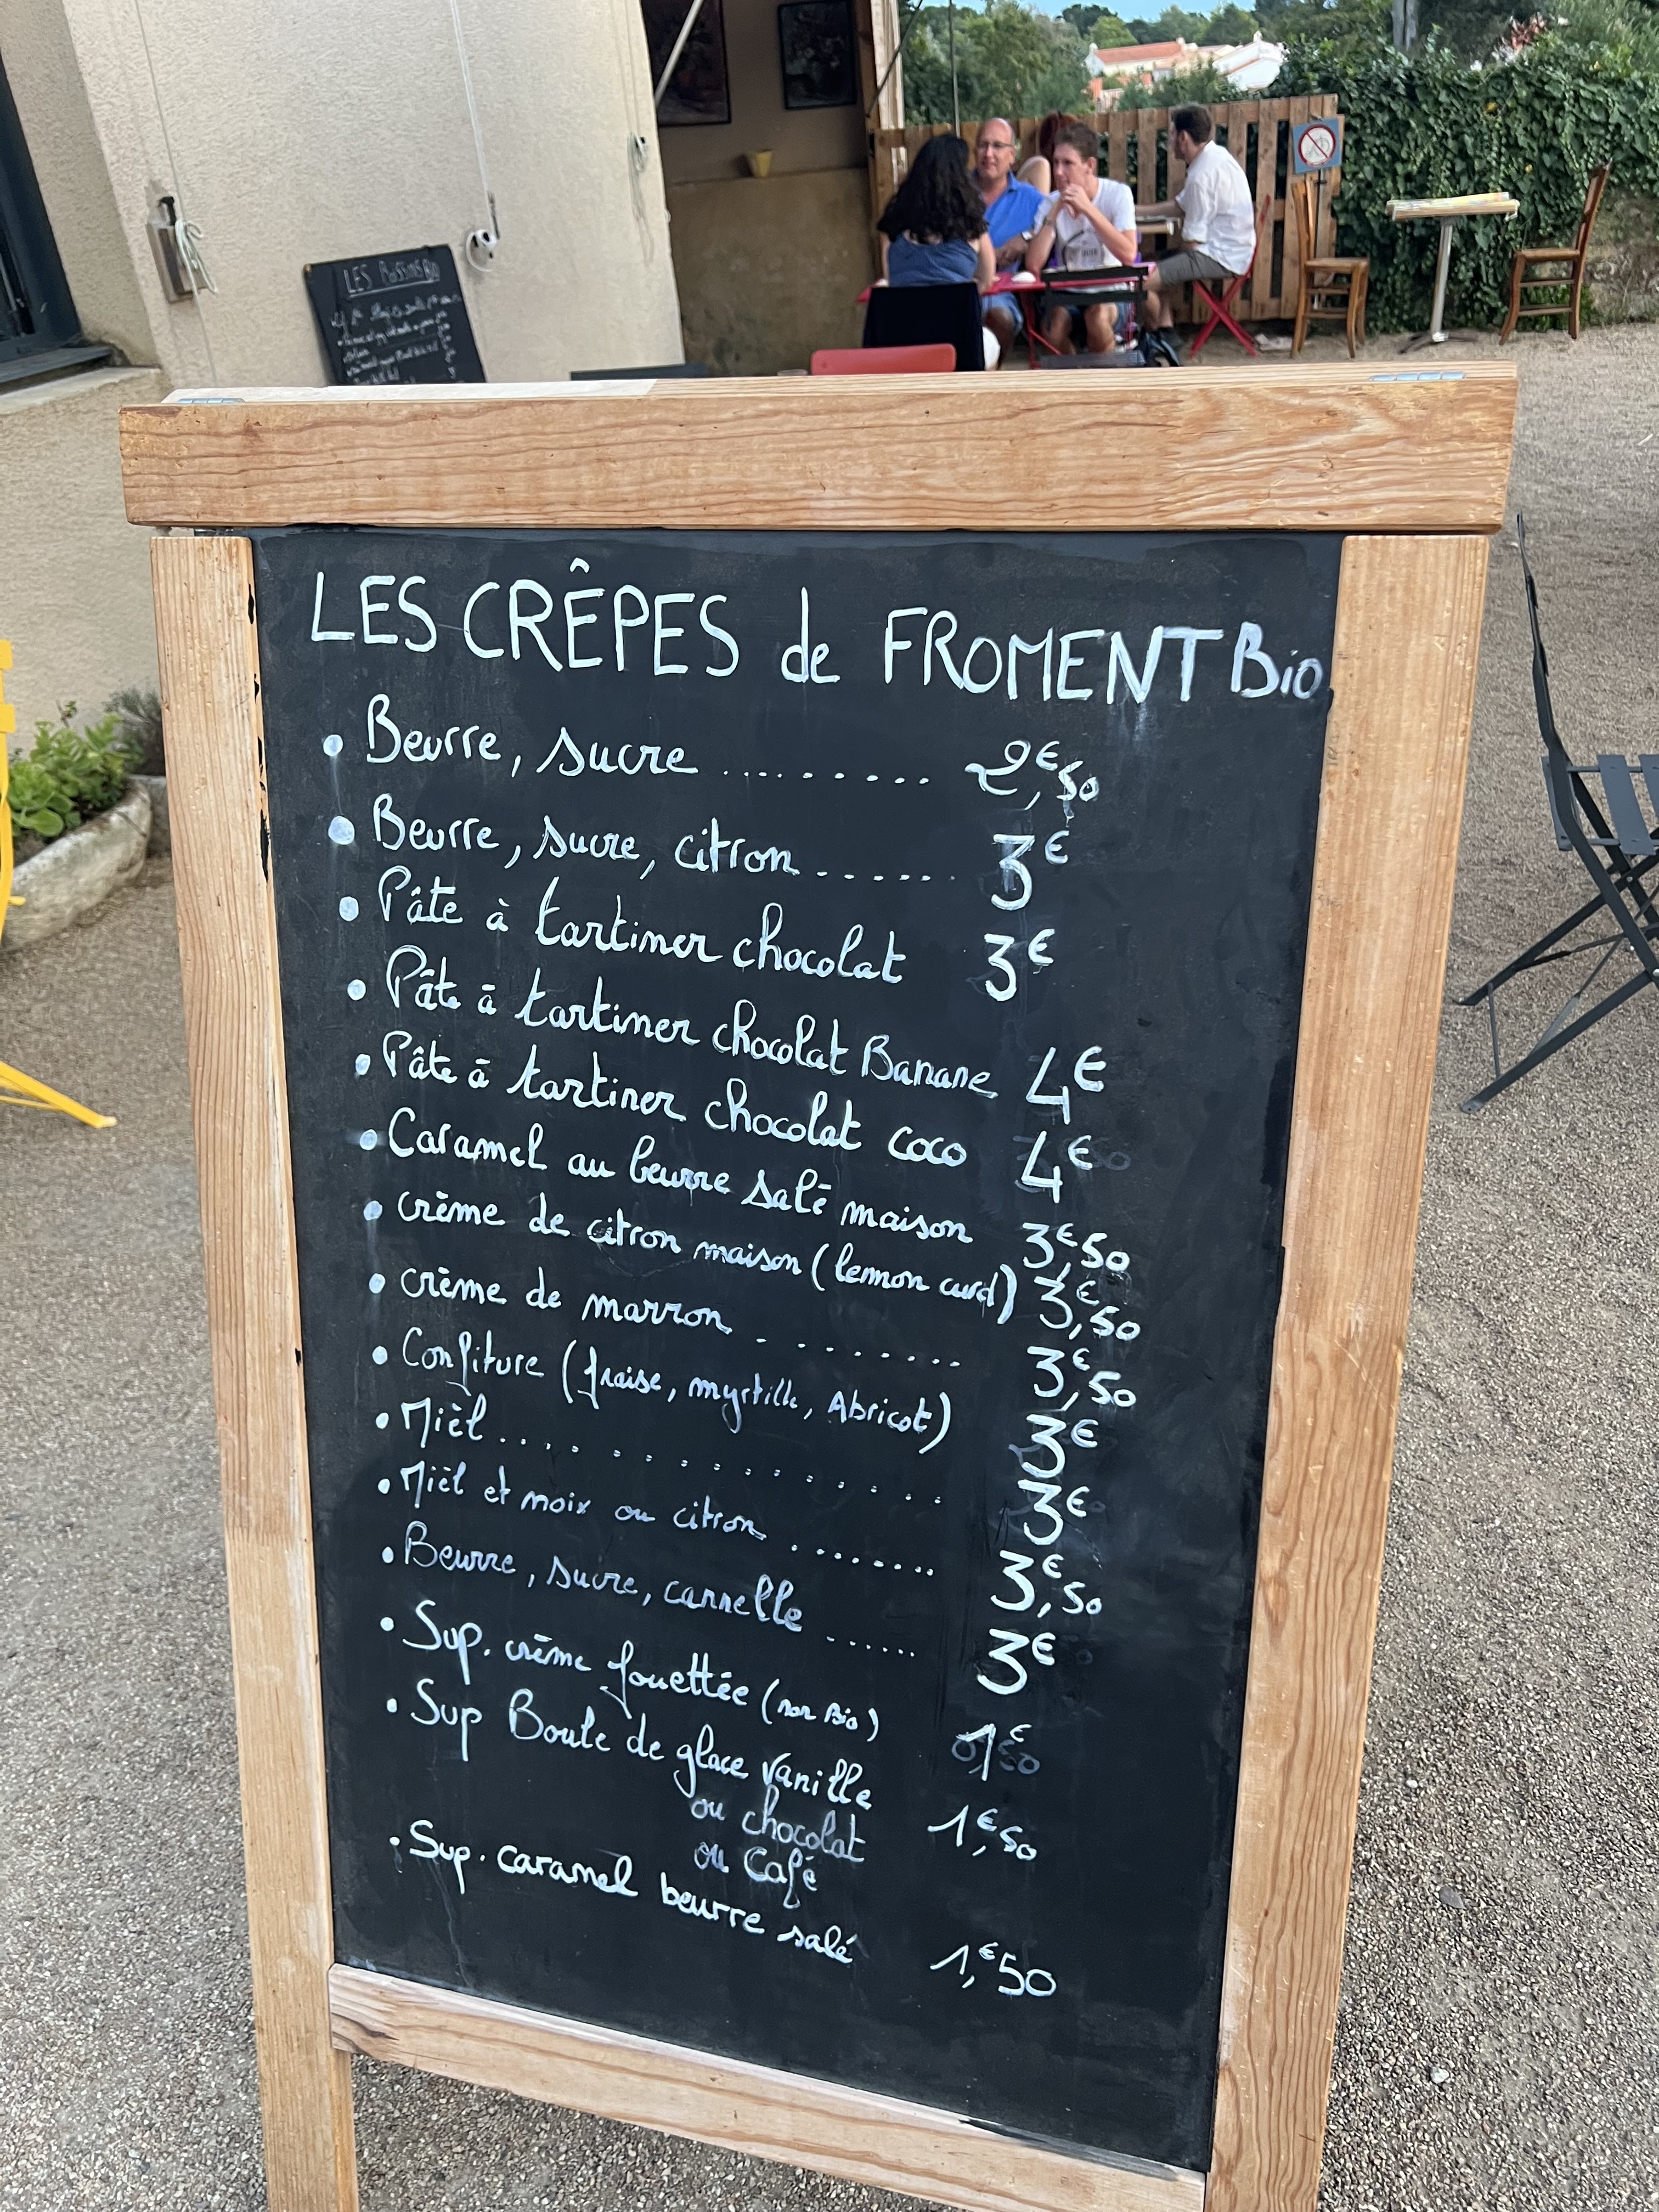 LES BOISSONS
LES CRÊPES de FROMENT Bio
• Beurre, sucre .......... 2€,50
• Beurre, sucre, citron....... 3€
• Pâte à tartiner chocolat 3€
• Pâte à tartiner chocolat Banane 4€
• Pâte à tartiner chocolat coco 4€
• Caramel au beurre salé maison 3€,50
• crème de citron maison (lemon curd) 3€,50
• crème de marron ......... 3€,50
• Confiture (fraise, myrtille, Abricot) 3€
• Mièl............... 3€
• Mièl et noix ou citron ........ 3€,50
• Beurre, sucre, cannelle ...... 3€
• Sup. crème fouettée (non Bio) 1€
• Sup Boule de glace vanille 1€,50
ou chocolat
ou Café
• Sup. caramel beurre salé 1,€50